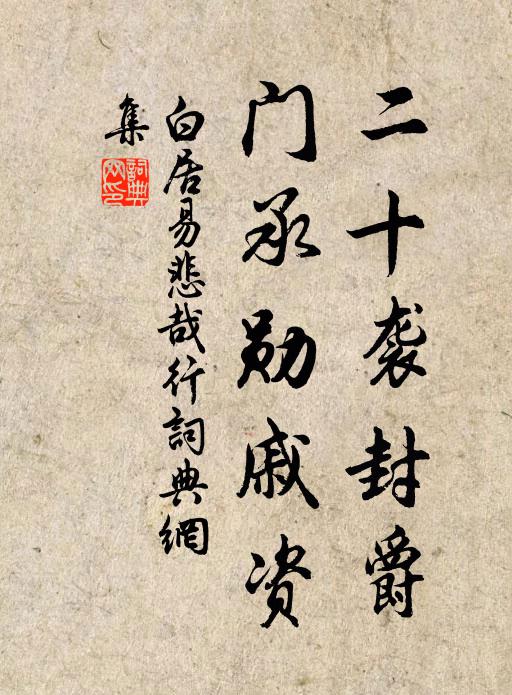 二十袭封爵
门承勋戚资
白居易悲哉行詞典網
集
詞典网印